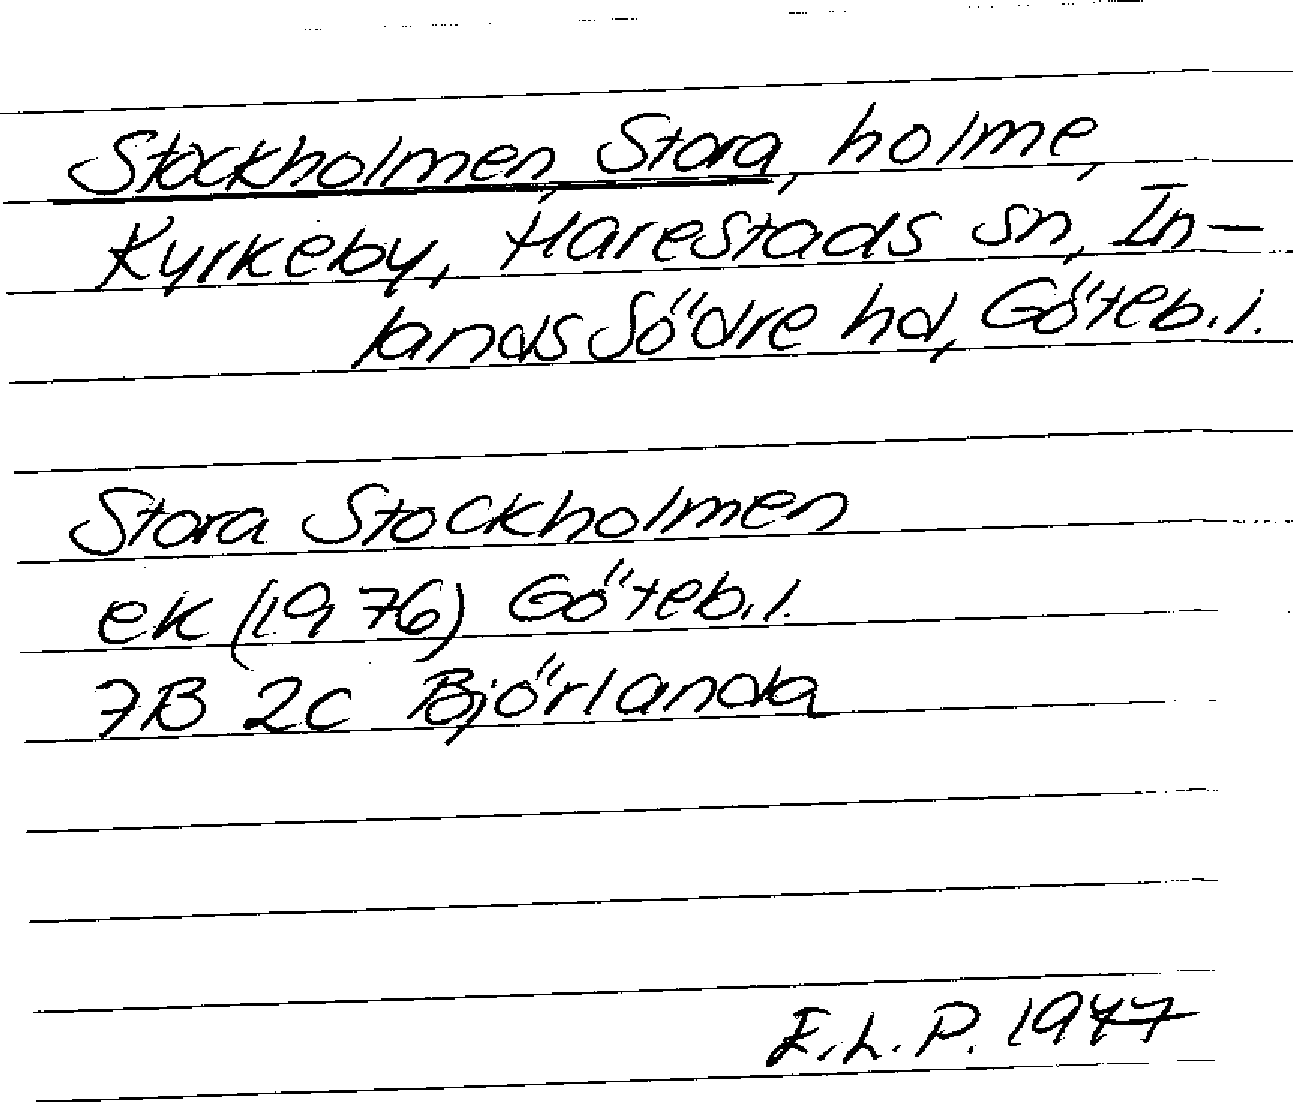 Stockholmen, Stora, holme,
Kyrkeby, Harestads sn, In-
lands Södre hd, Göteb.l.
Stora Stockholmen
ek (1976) Göteb.l.
7B 2c Björlanda
E.L.P. 1977